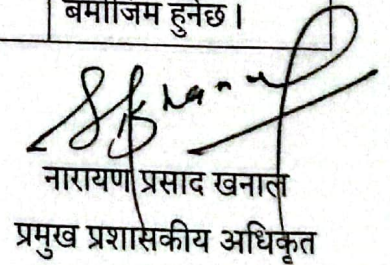 बमोजिम हुनेछ ।
नारायण प्रसाद खनाल
प्रमुख प्रशासकीय अधिकृत